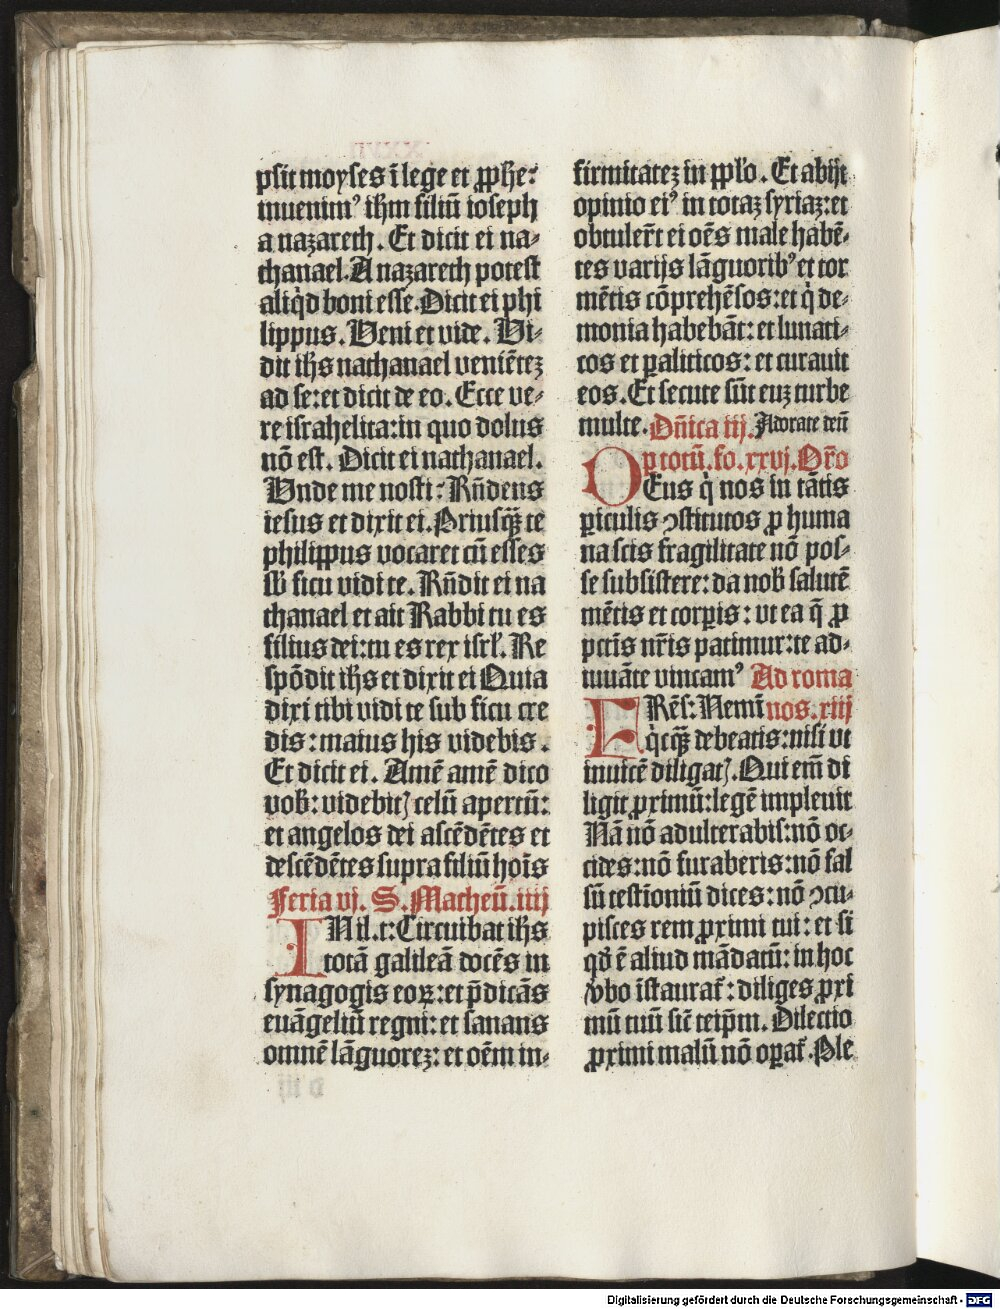 psit moyses ī lege et ꝓphe:
inuenimꝰ ihm filiū ioseph
a nazareth. Et dicit ei na⸗
thanael. A nazareth potest
aliqͥd boni esse. Dicit ei phi
lippus. Veni et vide. Vi⸗
dit ihs nathanael veniētez
ad se: et dicit de eo. Ecce ve⸗
re israhelita: in quo dolus
nō est. Dicit ei nathanael.
Vnde me nosti: Rn̄dens
iesus et dixit ei. Priusqꝫ te
philippus vocaret cū esses
sb̄ ficu vidi te. Rn̄dit ei na
thanael et ait Rabbi tu es
filius dei: tu es rex isrl̄. Re
spōdit ihs et dixit ei Quia
dixi tibi vidi te sub ficu cre
dis: maius his videbis.
Et dicit ei. Amē amē dico
vob̄: videbitꝭ celū apertū:
et angelos dei ascēdētes et
descēdētes supra filiū hoīs
Feria vj. S. Matheū. iiij
INil. t: Circuibat ihs
totā galileā docēs in
synagogis eoꝝ: et p̄dicās
euāgeliū regni: et sanans
omnē lāguorez: et oēm in⸗
firmitatez in ppl̄o. Et abijt
opinio eiꝰ in totaz syriaz: et
obtuler̄t ei oēs male habē⸗
tes varijs lāguoribꝰ et tor
mētis cōprehēsos: et qͥ de⸗
monia habebāt: et lunati⸗
cos et paliticos: et curauit
eos. Et secute sūt euz turbe
multe. Dn̄ica iij. Adorate deū
ꝑ totū. fo. xxvj. Or̄o
DEus qͥ nos in tātis
ꝑiculis ꝯstitutos ꝓ huma
na scis fragilitate nō pos⸗
se subsistere: da nob̄ salutē
mētis et corꝑis: vt ea q̄ ꝓ
pctīs nr̄is patimur: te ad⸗
iuuāte vincamꝰ Ad roma
nos. xiij
FRēs: Nemī
qͥcqꝫ debeatis: nisi vt
inuicē diligatꝭ. Qui em̄ di
ligit ꝓximū: legē impleuit
Nā nō adulterabis: nō oc⸗
cides: nō furaberis: nō fal
sū testioniū dices: nō ꝯcu⸗
pisces rem ꝓximi tui: et si
qd̄ ē aliud mādatū: in hoc
v̓bo īstaurat᷑: diliges ꝓxi
mū tuū sic̄ teip̄m. Dilectio
ꝓximi malū nō oꝑat᷑. Ple
Digitalisierung gefördert durch die Deutsche Forschungsgemeinschaft - DFG